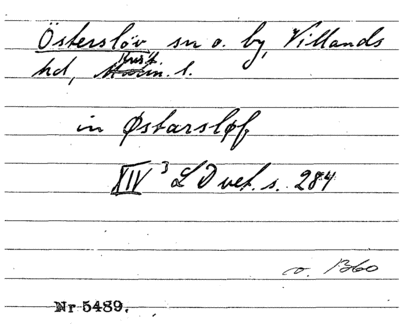 Österslöv sn o. by, Villands
hd, Krist. l.
in Østarsløf
XIV 3 L D vet. s. 284
Nr 5489.